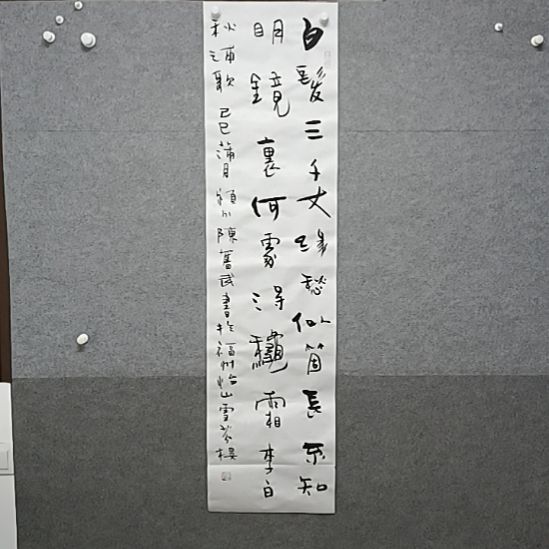 白髮三千丈緣愁似箇長不知
明鏡裏何處得秋霜李白
秋浦歌 乙巳蒲月 陳舊武書於福州怡山雪芬樓